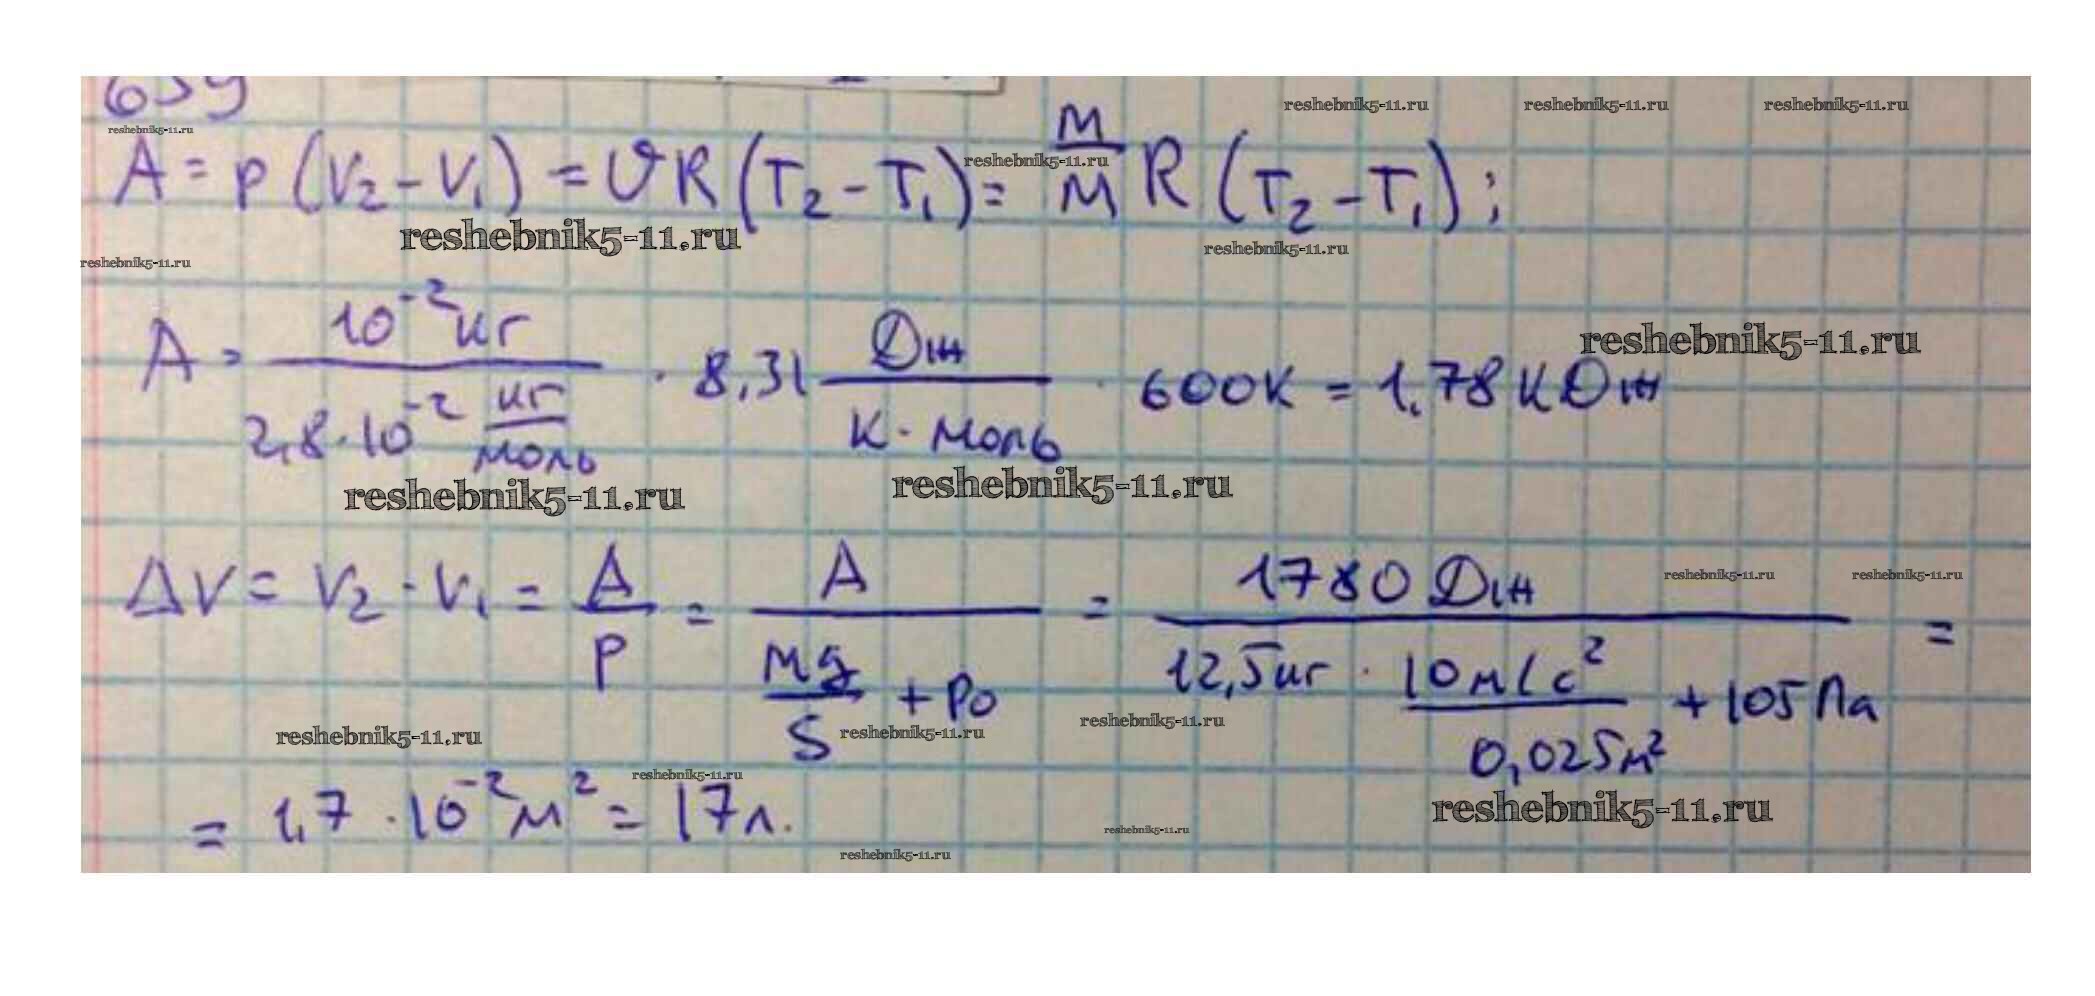 639
reshebnik5-11.ru reshebnik5-11.ru reshebnik5-11.ru
reshebnik5-11.ru
A = p (V₂ - V₁) = νR (T₂ - T₁) = m/M R (T₂ - T₁);
reshebnik5-11.ru
reshebnik5-11.ru reshebnik5-11.ru
reshebnik5-11.ru
A = 10⁻² кг / 2,8·10⁻² кг/моль · 8,31 Дж / К · моль · 600К = 1,78 КДж
reshebnik5-11.ru
reshebnik5-11.ru reshebnik5-11.ru
ΔV = V₂ - V₁ = A/P = A / (mg/S + P₀) = 1780 Дж / (12,5кг · 10м/с² / 0,025м² + 105 Па) =
reshebnik5-11.ru reshebnik5-11.ru
reshebnik5-11.ru reshebnik5-11.ru reshebnik5-11.ru
= 1,7 · 10⁻² м² = 17л.
reshebnik5-11.ru reshebnik5-11.ru
reshebnik5-11.ru
reshebnik5-11.ru